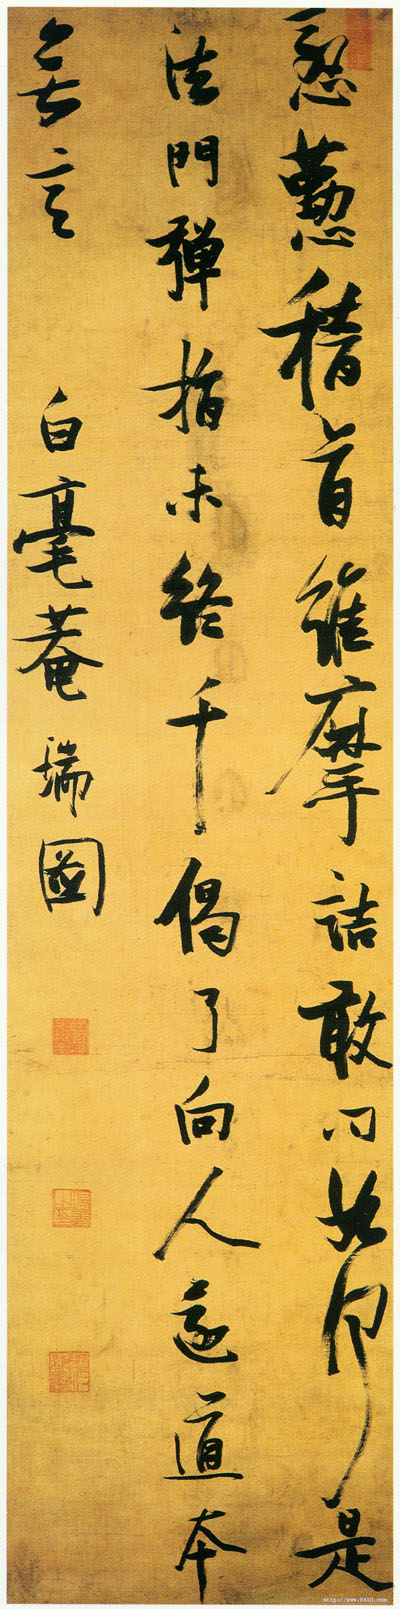 慇懃稽首維摩詰敢問如何是
法門彈指未終千偈了向人還道本
無言
白毫菴瑞圖
http://www.9610.com